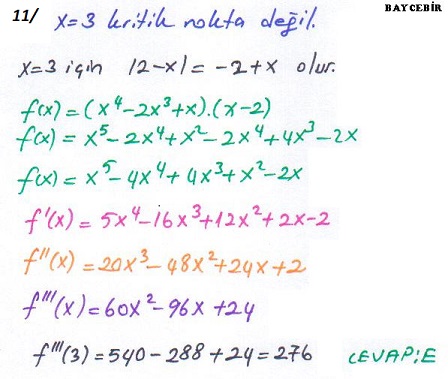 BAYCEBİR
11/ x=3 kritik nokta değil.
x=3 için |2-x|=-2+x olur.
f(x)=(x⁴-2x³+x).(x-2)
f(x)=x⁵-2x⁴+x²-2x⁴+4x³-2x
f(x)=x⁵-4x⁴+4x³+x²-2x
f'(x)=5x⁴-16x³+12x²+2x-2
f''(x)=20x³-48x²+24x+2
f'''(x)=60x²-96x+24
f'''(3)=540-288+24=276 CEVAP:E